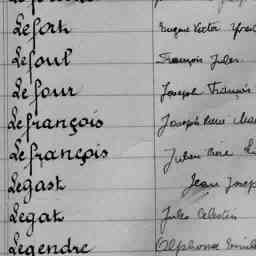 Lefort Eugène Victor
Lefoul François Jules
Lefour Joseph François
Lefrançois Joseph René
Lefrançois Julien
Legast Jean Joseph
Légat Jules Célestin
Legendre Alphonse